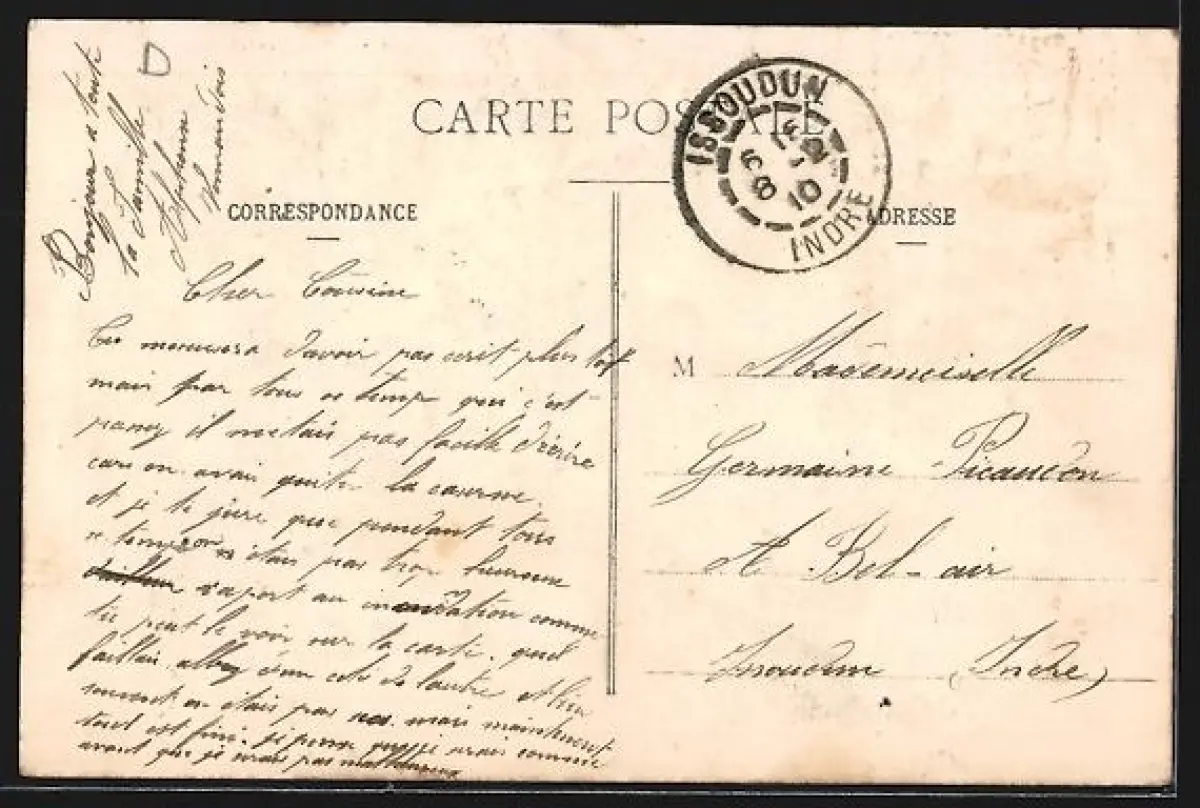 D
Bonjour a toute
la famille
Alphonse
CARTE POSTALE
ISSOUDUN
INDRE
10
CORRESPONDANCE
ADRESSE
Cher Cousine
Tu mexcusera davoir pas ecrit plus tot
mais par tous ce temp qui c'est
passez il metais pas facile d'ecrire
cars on avai quite la caserne
et je te jure que pendant tous
ce temp on n'etais pas trop heureux
raport au inondation comme
tu peut le voir sur la carte. quil
faillais allez d'un cote de lautre et bien
souvent on etais pas sec. mais maintenent
tout est fini. je pense que je serai comme
avant que je serais pas malheureux
M Mademoiselle
Germaine Picaudon
A Bel-air
Issoudun (Indre)